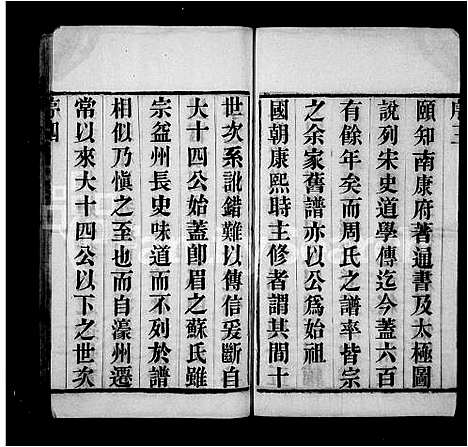 序三
頤知南康府著通書及太極圖
說列宋史道學傳迄今蓋六百
有餘年矣而周氏之譜率皆宗
之余家舊譜亦以公爲始祖
國朝康熙時主修者謂其間十
世次系訛錯難以傳信爰斷自
大十四公始蓋卽眉之蘇氏雖
宗益州長史味道而不列於譜
相似乃愼之至也而自濠州遷
常以來大十四公以下之世次
序四